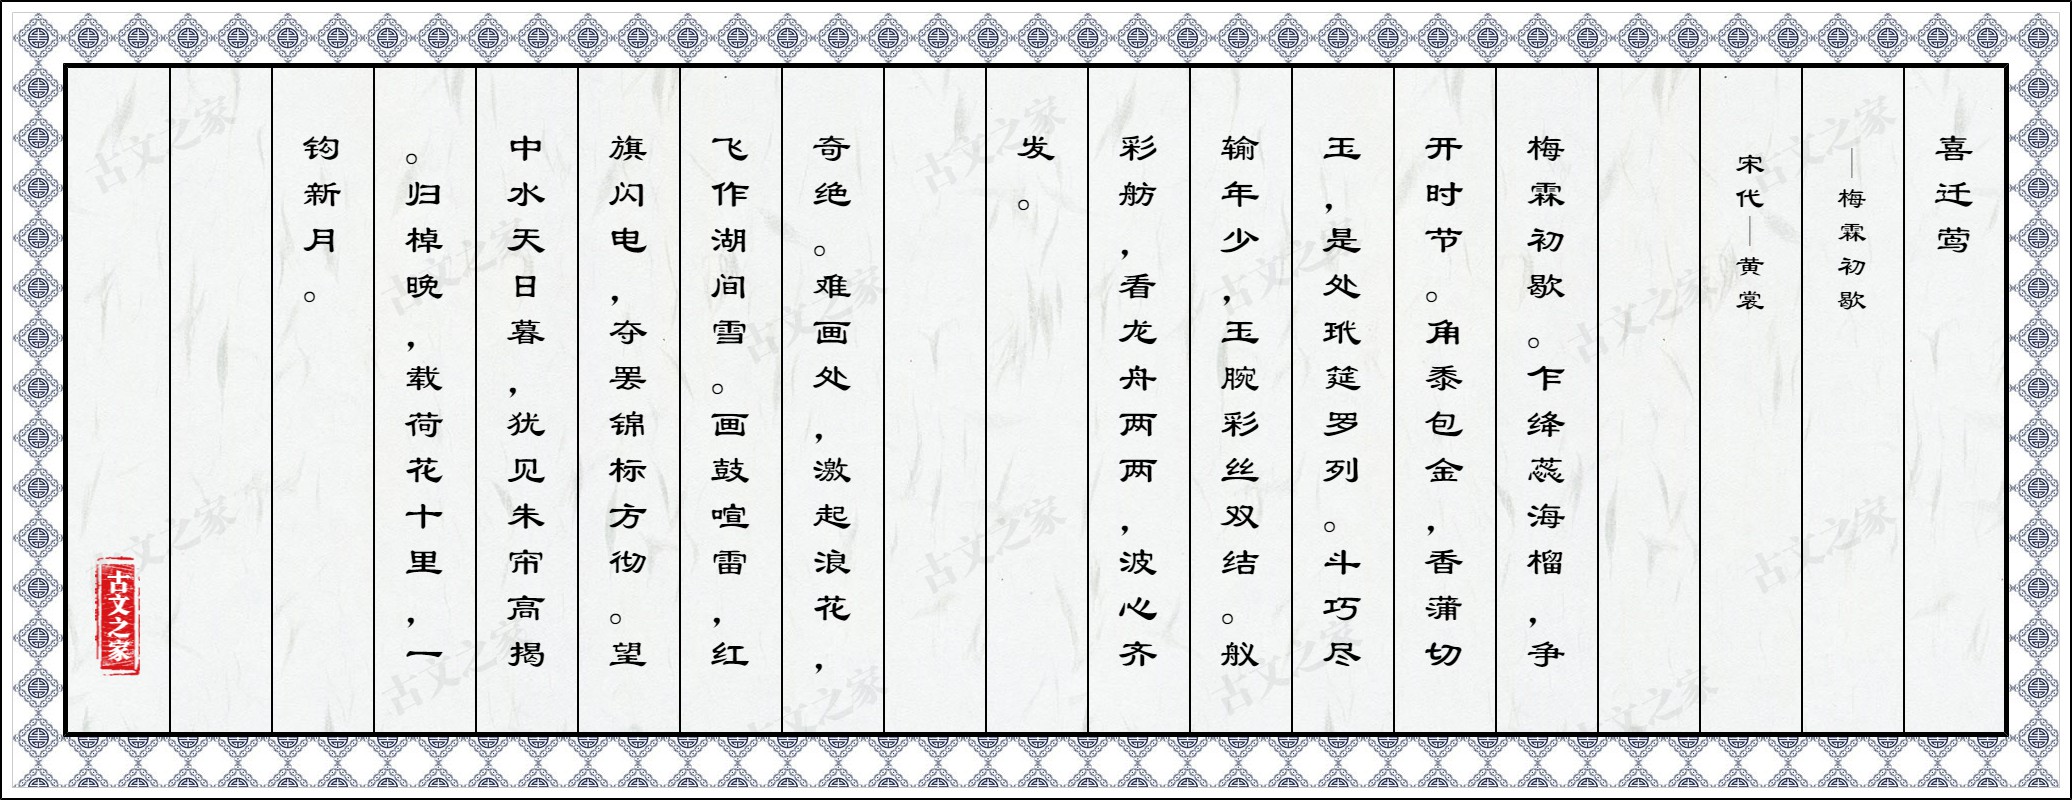 喜迁莺
——梅霖初歇
宋代——黄裳
梅霖初歇。乍绛蕊海榴，争
开时节。角黍包金，香蒲切
玉，是处玳筵罗列。斗巧尽
输年少，玉腕彩丝双结。舣
彩舫，看龙舟两两，波心齐
发。
奇绝。难画处，激起浪花，
飞作湖间雪。画鼓喧雷，红
旗闪电，夺罢锦标方彻。望
中水天日暮，犹见朱帘高揭
。归棹晚，载荷花十里，一
钩新月。
古文之家